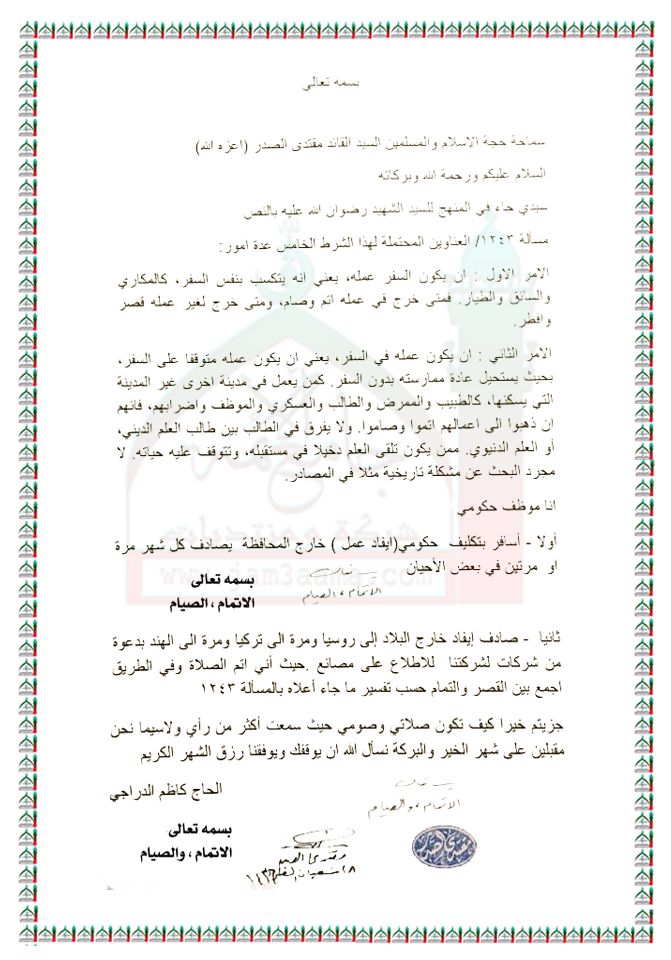 بسمه تعالى
سماحة حجة الاسلام والمسلمين السيد القائد مقتدى الصدر (اعزه الله)
السلام عليكم ورحمة الله وبركاته
سيدي جاء في المنهج للسيد الشهيد رضوان الله عليه بالنص
مسألة ١٢٤٣/ العناوين المحتملة لهذا الشرط الخامس عدة امور:
الامر الاول : ان يكون السفر عمله، يعني انه يتكسب بنفس السفر، كالمكاري
والسائق والطيار. فمتى خرج في عمله اتم وصام، ومتى خرج لغير عمله قصر
وافطر.
الامر الثاني : ان يكون عمله في السفر، يعني ان يكون عمله متوقفا على السفر،
بحيث يستحيل عادة ممارسته بدون السفر. كمن يعمل في مدينة اخرى غير المدينة
التي يسكنها، كالطبيب والممرض والطالب والعسكري والموظف واضرابهم، فانهم
ان ذهبوا الى اعمالهم اتموا وصاموا. ولا يفرق في الطالب بين طالب العلم الديني،
أو العلم الدنيوي. ممن يكون تلقى العلم دخيلا في مستقبله، وتتوقف عليه حياته. لا
مجرد البحث عن مشكلة تاريخية مثلا في المصادر.
انا موظف حكومي
أولا - أسافر بتكليف حكومي(ايفاد عمل ) خارج المحافظة يصادف كل شهر مرة
او مرتين في بعض الأحيان
بسمه تعالى
الاتمام ، الصيام
بسمه تعالى
الاتمام ، الصيام
www.jam3aama.com
ثانيا - صادف إيفاد خارج البلاد إلى روسيا ومرة الى تركيا ومرة الى الهند بدعوة
من شركات لشركتنا للاطلاع على مصانع .حيث أني اتم الصلاة وفي الطريق
اجمع بين القصر والتمام حسب تفسير ما جاء أعلاه بالمسألة ١٢٤٣
جزيتم خيرا كيف تكون صلاتي وصومي حيث سمعت أكثر من رأي ولاسيما نحن
مقبلين على شهر الخير والبركة نسأل الله ان يوفقك ويوفقنا رزق الشهر الكريم
الحاج كاظم الدراجي
بسمه تعالى
الاتمام ، والصيام
بسمه تعالى
الاتمام ، والصيام
مقتدى الصدر
مقتدى الصدر